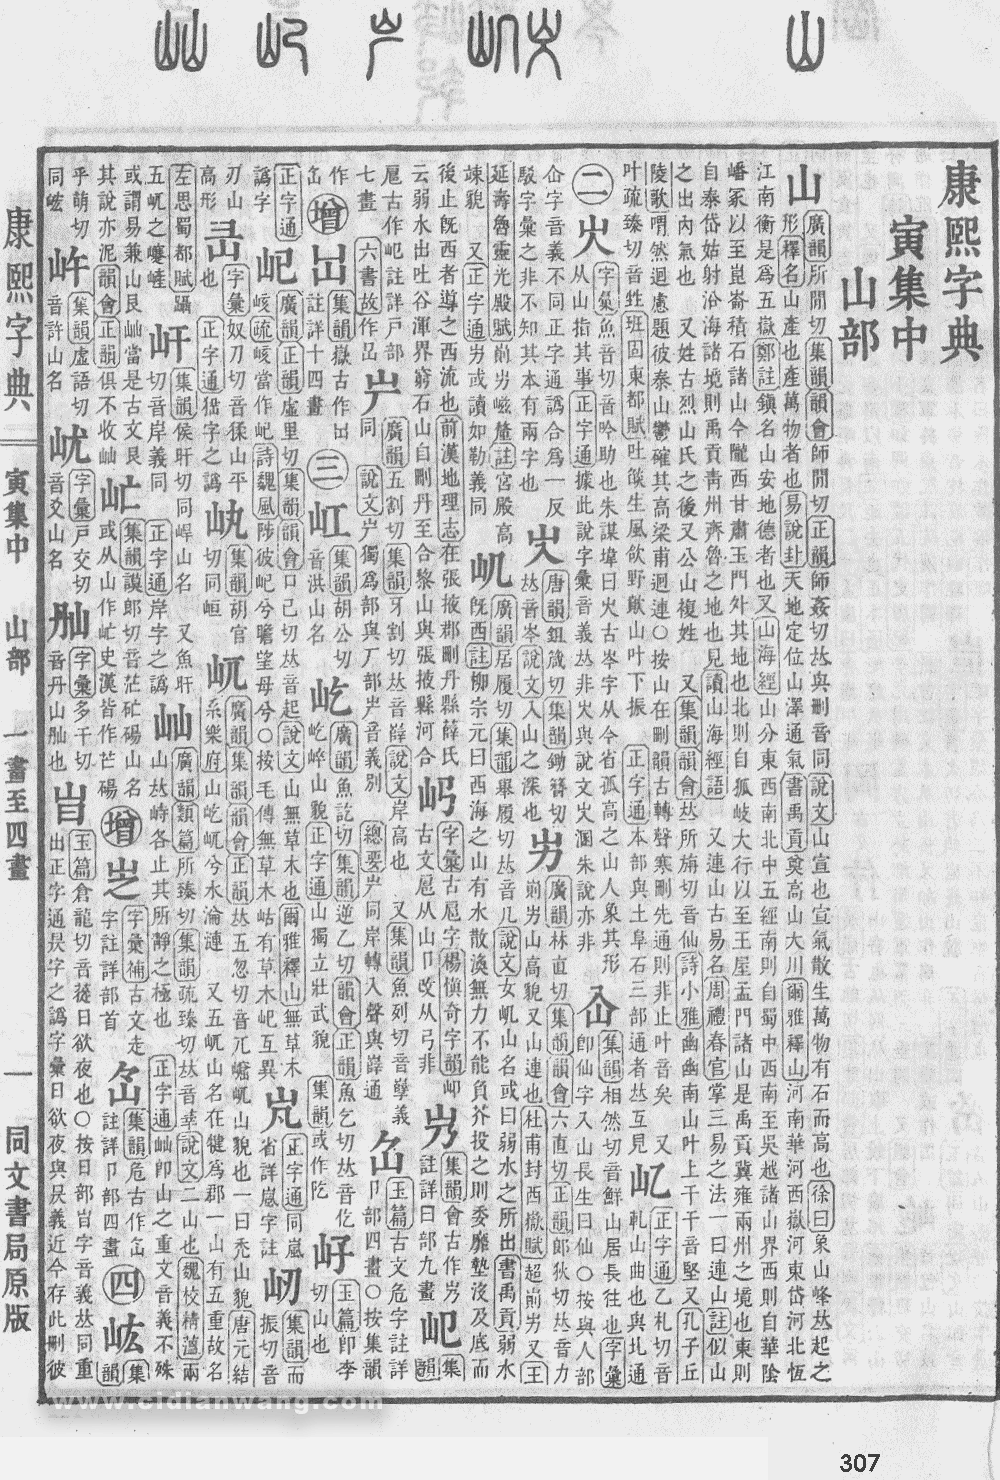 山
康熙字典
寅集中
山部
山
廣韻所閒切集韻韻會師閒切正韻師姦切𠀤與刪音同說文山宣也宣氣散生萬物有石而高也徐曰象山峰𠀤起之
形釋名山產也產萬物者也易說卦天地定位山澤通氣書禹貢奠高山大川爾雅釋山河南華河西嶽河東岱河北恆
江南衡是爲五嶽鄭註鎭名山安地德者也又山海經山分東西南北中五經南則自蜀中西南至吳越諸山界西則自華陰
嶓冢以至崑崙積石諸山今隴西甘肅玉門外其地也北則自狐岐太行以至王屋孟門諸山是禹貢冀雍兩州之境也東則
自泰岱姑射沿海諸境則禹貢靑州齊魯之地也見讀山海經語 又連山古易名周禮春官掌三易之法一曰連山註似山
之出內氣也 又姓古烈山氏之後又公山複姓 又集韻韻會𠀤所旃切音仙詩小雅幽幽南山叶上干干音堅又孔子丘
陵歌喟然迴慮題彼泰山鬱確其高梁甫迴連○按山在刪韻古轉聲寒刪先通則非止叶音矣 又
叶疏臻切音甡班固東都賦吐燄生風欱野歕山叶下振 正字通本部與土阜石三部通者𠀤互見
正字通乙札切音
軋山曲也與圠通
二
字彙魚音切音吟助也朱謀㙔曰火古岑字从今省孤高之山人象其形
从山指其事正字通據此說字彙音義𠀤非
集韻相然切音鮮山居長往也字彙
卽仙字入山長生曰仙○按與人部
仚字音義不同正字通譌合爲一反
駁字彙之非不知其本有兩字也
唐韻鉏箴切集韻鋤簪切
𠀤音岑說文入山之深也
屴
廣韻林直切集韻韻會六直切正韻郞狄切𠀤音力
崱屴山高貌又山連也杜甫封西嶽賦超崱屴又王
延壽魯靈光殿賦崱屴嵫釐註宮殿高
竦貌 又正字通屴或讀如勒義同
廣韻居履切集韻舉履切𠀤音几說文女屼山名或曰弱水之所出書禹貢弱水
旣西註柳宗元曰西海之山有水散渙無力不能負芥投之則委靡墊沒及底而
後止旣西者導之西流也前漢地理志在張掖郡刪丹縣薛氏
云弱水出吐谷渾界窮石山自刪丹至合黎山與張掖縣河合
字彙古戹字楊愼奇字韻
古文戹从山卩改从弓非
集韻會古作屶
註詳曰部九畫
集韻
戹古作屺註詳戶部
七畫 六書故作嵒
同
廣韻五割切集韻牙割切𠀤音嶭說文岸高也 又集韻魚列切音孼義
說文屵獨爲部與厂部音義別 總要屵同岸轉入聲與嶭通
玉篇古文危字註詳
卩部四畫○按集韻
作
增
集韻嶽古作
註詳十四畫
三
集韻胡公切
音洪山名
屹
廣韻魚訖切集韻逆乙切韻會正韻魚乞切𠀤音仡
屹崪山貌正字通山獨立壯武貌 集韻或作阣
玉篇卽李
切山也
正字通
譌字
屺
廣韻正韻虛里切集韻韻會口己切𠀤音起說文山無草木也爾雅釋山無草木
峐疏峐當作屺詩魏風陟彼屺兮瞻望母兮○按毛傳無草木岵有草木屺互異
正字通同嵐
省詳嵐字註
屻
集韻而
振切音
刃山
高形
字彙奴刀切音猱山平
也 正字通峱字之譌
集韻胡官
切同峘
屼
廣韻集韻韻會正韻𠀤五忽切音兀㠋屼山貌也一曰禿山貌唐元結
系樂府山屹屼兮水淪漣 又五屼山名在犍爲郡一山有五重故名
左思蜀都賦躡
五屼之蹇嵼
屽
集韻侯旰切同垾山名 又魚旰
切音岸義同 正字通岸字之譌
屾
廣韻類篇所臻切集韻疏臻切𠀤音莘說文二山也魏校精蘊兩
山𠀤峙各止其所靜之極也 正字通屾卽山之重文音義不殊
或謂易兼山艮屾當是古文艮
其說亦泥韻會正韻俱不收屾
集韻謨郞切音茫𥐟碭山名
或从山作史漢皆作芒碭
增
字彙補古文走
字註詳部首
集韻危古作
註詳卩部四畫
四
集
韻
乎萌切
同峵
集韻虛語切
音許山名
字彙戶交切
音爻山名
字彙多干切
音丹山也
玉篇倉龍切音蓯日欲夜也○按日部旹字音義𠀤同重
出正字通㫗字之譌字彙日欲夜與㫗義近今存此刪彼
康熙字典
寅集中 山部 一畫至四畫
一
同文書局原版
www.cidianwang.com
307